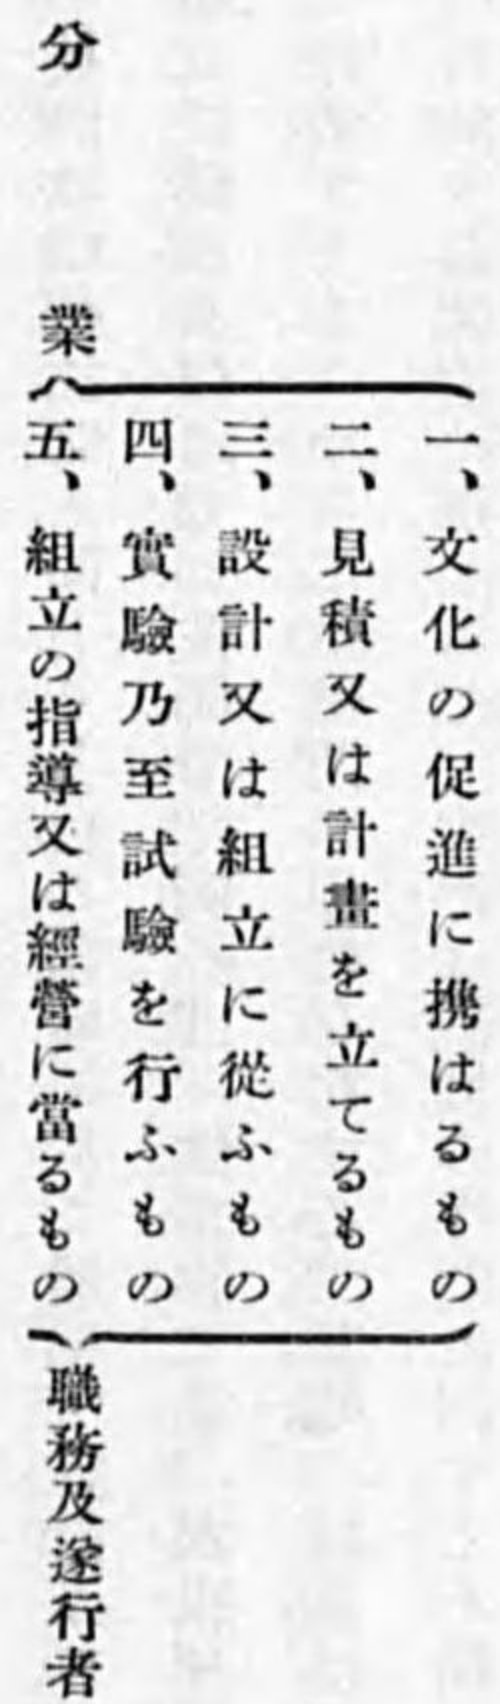 分業
一、文化の促進に携はるもの
二、見積又は計畫を立てるもの
三、設計又は組立に從ふもの
四、實驗乃至試驗を行ふもの
五、組立の指導又は經營に當るもの
職務及遂行者